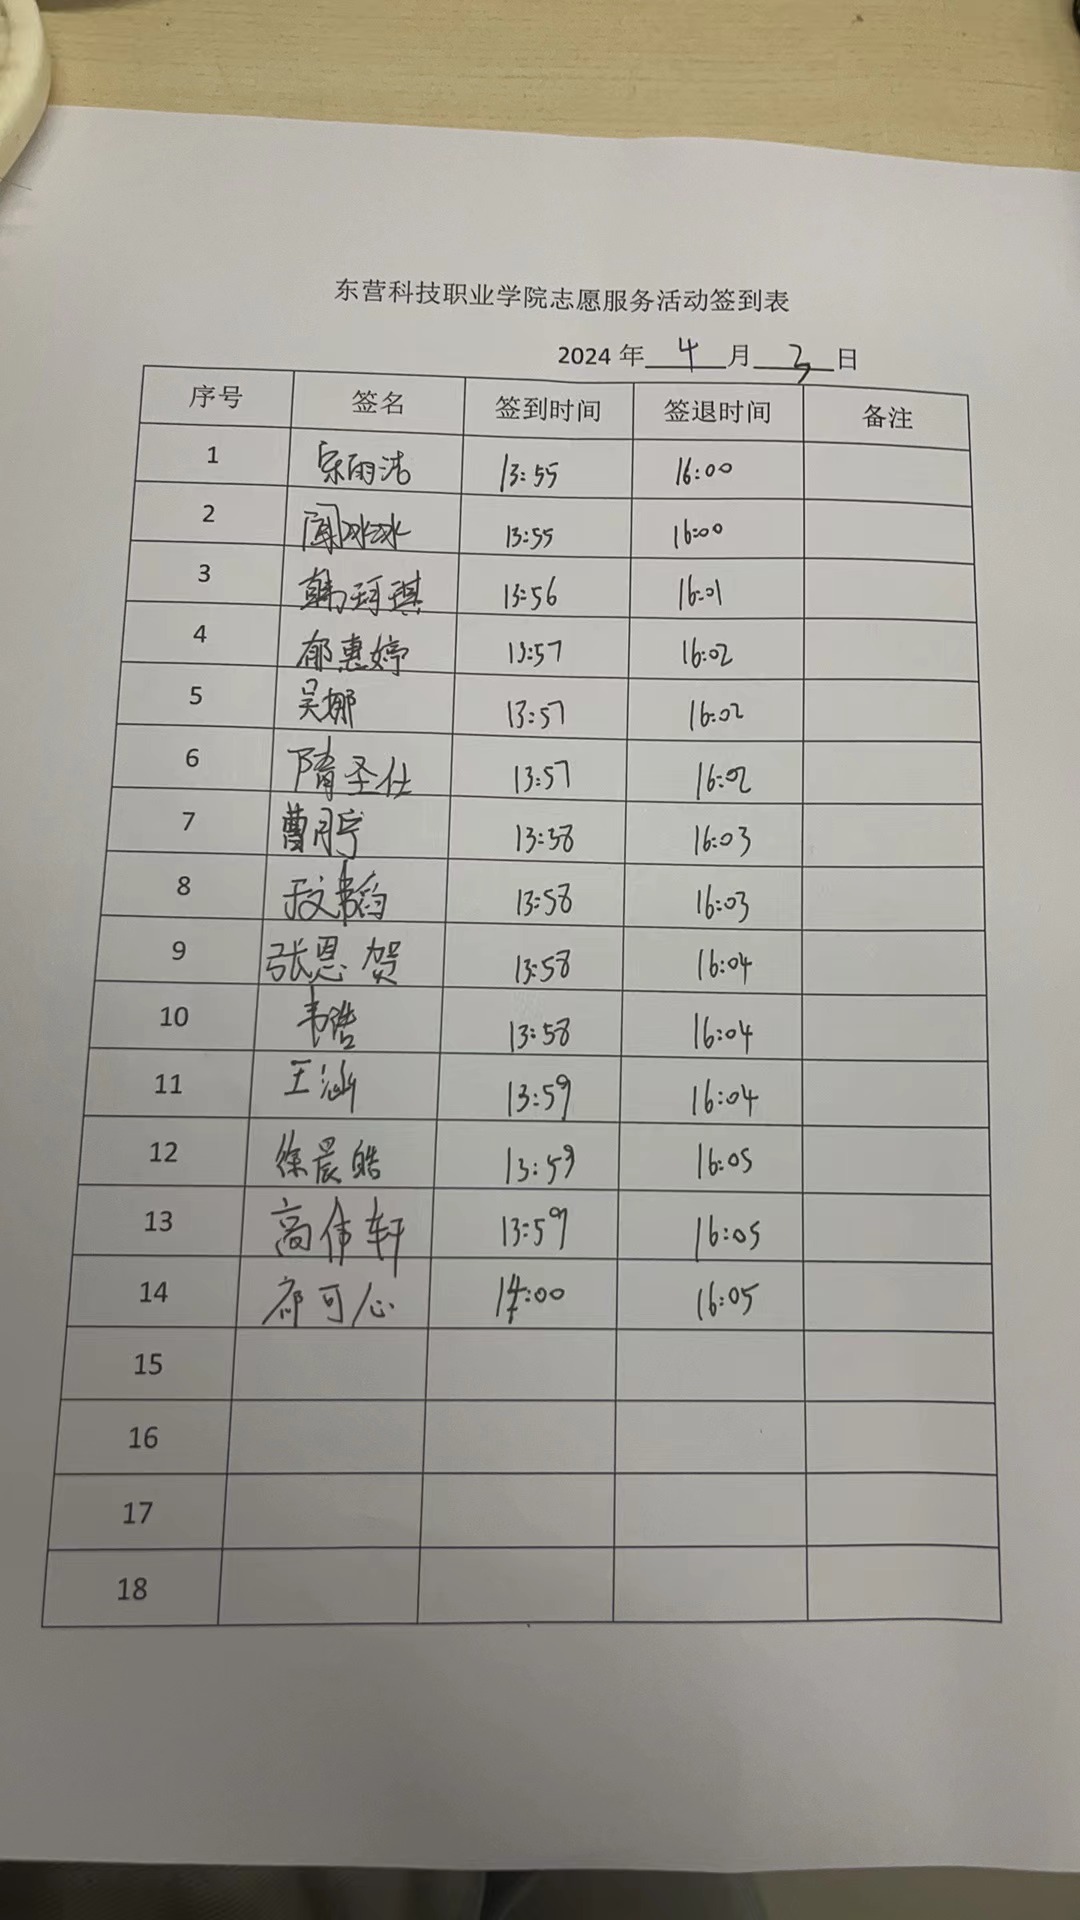 东营科技职业学院志愿服务活动签到表
2024 年 4 月 3 日
序号 签名 签到时间 签退时间 备注
1 宋雨洁 13:55 16:00
2 冰冰 13:55 16:00
3 韩珂琪 13:56 16:01
4 郁惠婷 13:57 16:02
5 吴娜 13:57 16:02
6 隋圣仕 13:57 16:02
7 曹月宁 13:58 16:03
8 13:58 16:03
9 张恩贺 13:58 16:04
10 韦浩 13:58 16:04
11 王涵 13:59 16:04
12 徐晨皓 13:59 16:05
13 高伟轩 13:59 16:05
14 祁可心 14:00 16:05
15
16
17
18